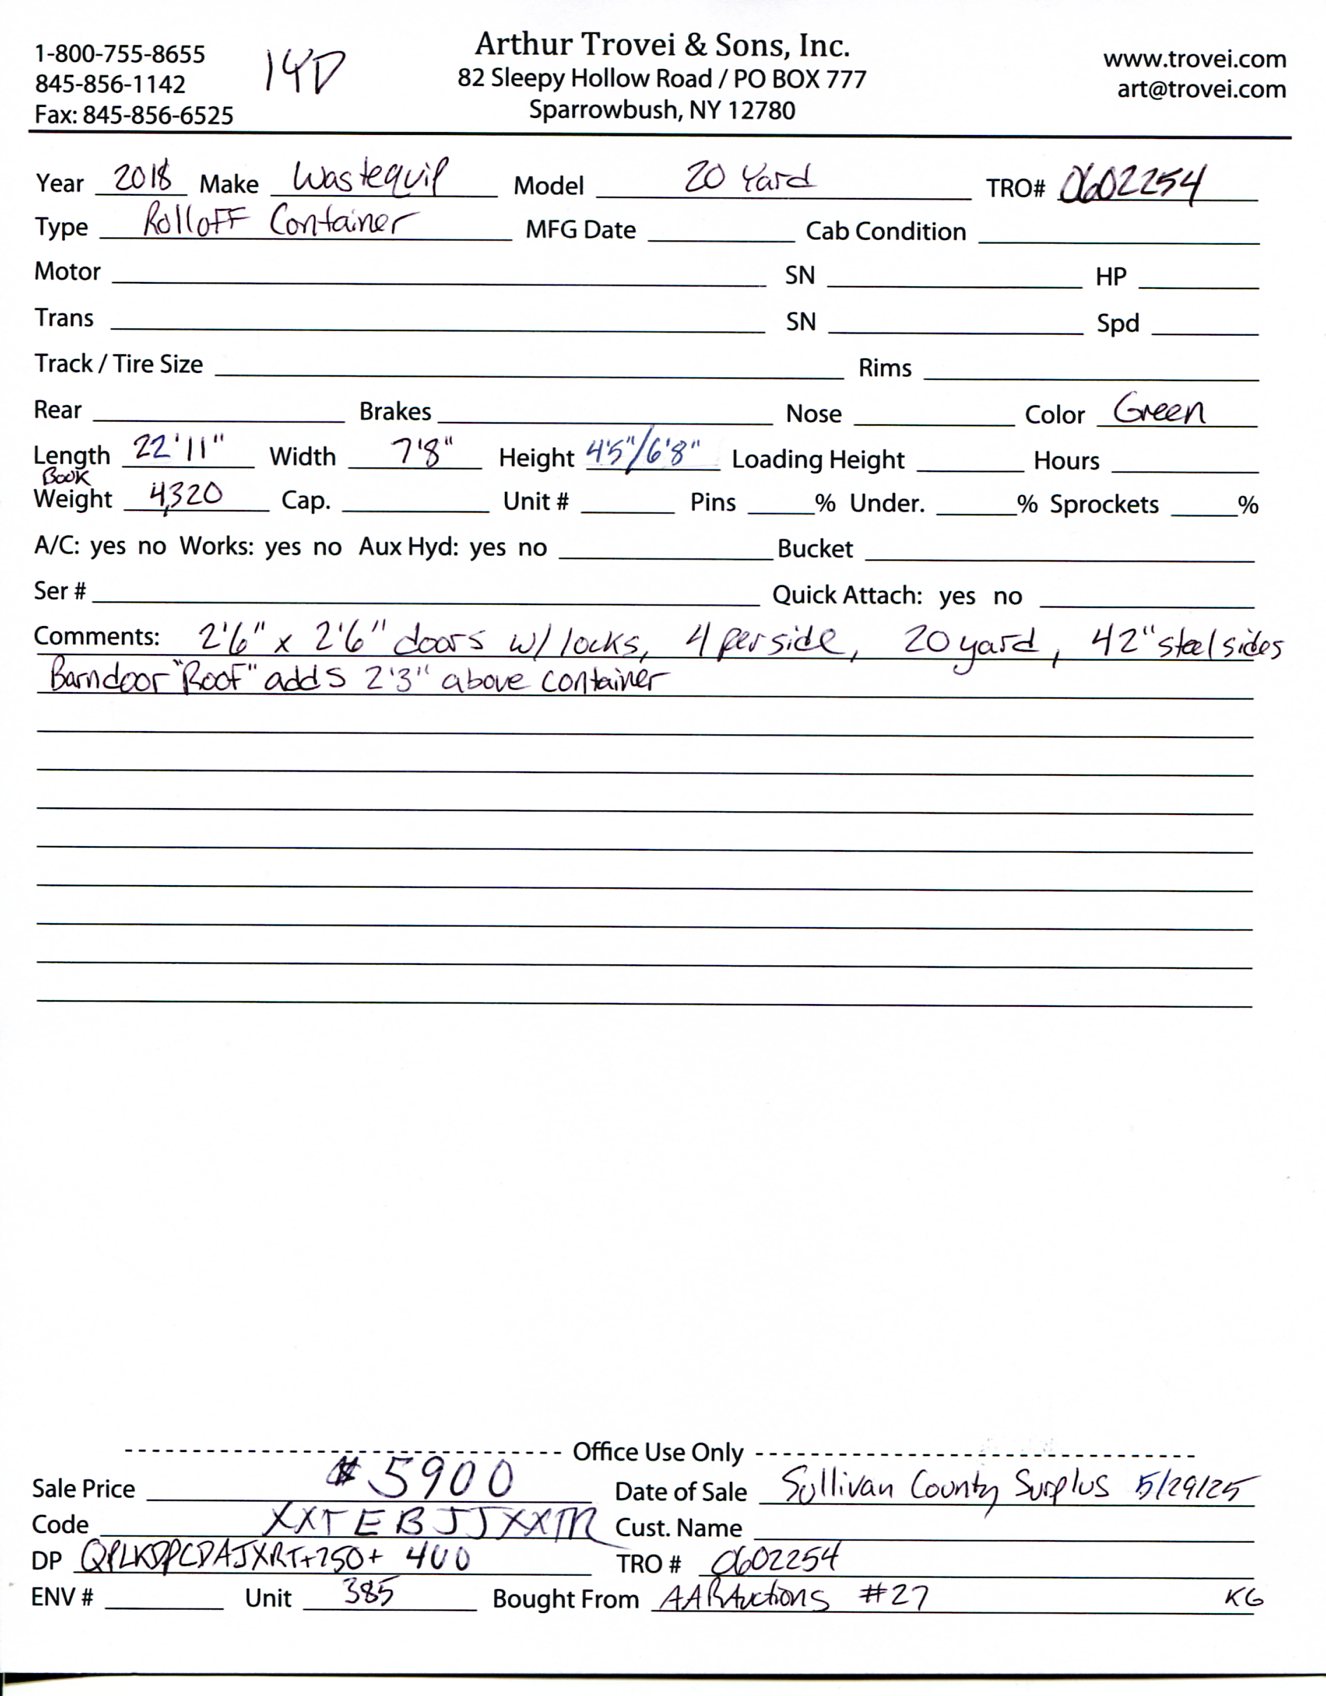 1-800-755-8655
845-856-1142
Fax: 845-856-6525
14D
Arthur Trovei & Sons, Inc.
82 Sleepy Hollow Road / PO BOX 777
Sparrowbush, NY 12780
www.trovei.com
art@trovei.com
Year 2018 Make Wastequip Model 20 Yard TRO# 0602254
Type Rolloff Container MFG Date Cab Condition
Motor SN HP
Trans SN Spd
Track / Tire Size Rims
Rear Brakes Nose Color Green
Length 22'11" Width 7'8" Height 4'5"/6'8" Loading Height Hours
Book
Weight 4,320 Cap. Unit # Pins % Under. % Sprockets %
A/C: yes no Works: yes no Aux Hyd: yes no Bucket
Ser # Quick Attach: yes no
Comments: 2'6" x 2'6" doors w/ locks, 4 per side, 20 yard, 42" steel sides
Barndoor "Roof" adds 2'3" above container
Office Use Only
Sale Price $5900 Date of Sale Sullivan County Surplus 5/29/25
Code XXTEBJJXXTR Cust. Name
DP +750+ 400 TRO # 0602254
ENV # Unit 385 Bought From AARAuctions #27 KG